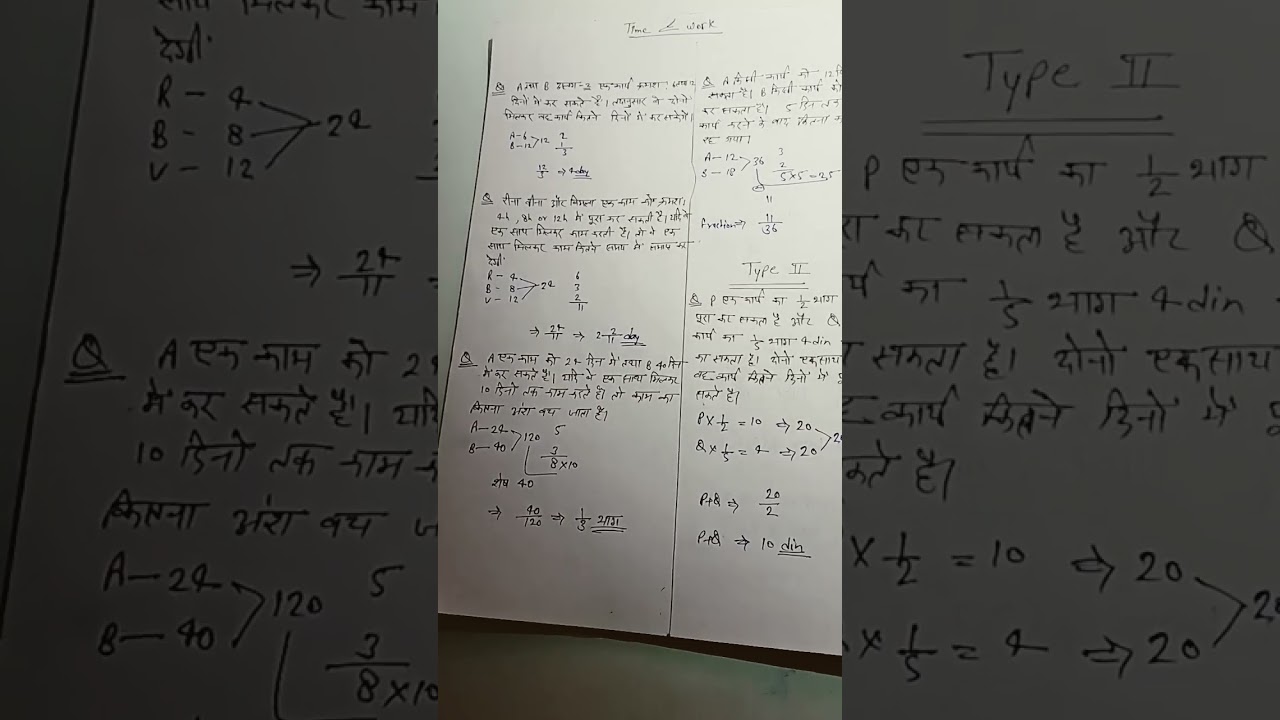 Time & work
Q A तथा B अलग-2 एक कार्य क्रमशः 6 तथा 12
दिनों में कर सकते है। तदनुसार वे दोनो
मिलकर वह कार्य कितने दिनों में कर सकेंगे।
A-6
B-12
12
2
1
3
12/3 ⇒ 4 day
Q रीना वीना और विमला एक काम को क्रमशः
4h, 8h or 12h में पूरा कर सकती है। यदि वे
एक साथ मिलकर काम करती है। तो वे एक
साथ मिलकर काम कितने समय में समाप्त कर
देगी
R - 4
B - 8
V - 12
24
6
3
2
11
⇒ 24/11 ⇒ 2 2/11 day
Q A एक काम को 24 दिन में तथा B 40 दिन
में कर सकते है। यदि वे एक साथ मिलकर
10 दिनो तक काम करते है। तो काम का
कितना अंश बच जाता है।
A-24
B-40
120
5
3
8×10
शेष 40
⇒ 40/120 ⇒ 1/3 भाग
Q A किसी कार्य को 12 दि
सकता है। B किसी कार्य को
कर सकता है। 5 दिन तक
कार्य करने के बाद कितना का
रह गया।
A-12
B-18
36
3
2
5×5=25
11
fraction ⇒ 11/36
Type II
Q P एक कार्य का 1/2 भाग
पूरा कर सकता है और Q
कार्य का 1/5 भाग 4 din
का सकता है। दोनो एक साथ
वह कार्य कितने दिनों में पू
सकते है।
P × 1/2 = 10 ⇒ 20
Q × 1/5 = 4 ⇒ 20
20
P+Q ⇒ 20/2
P+Q ⇒ 10 din